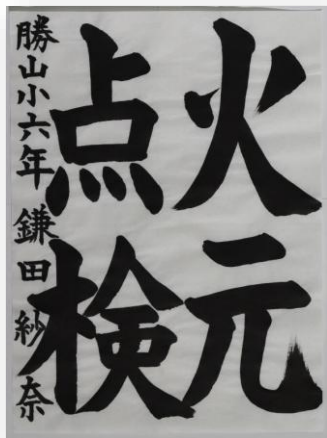 火元
点検
勝山小六年 鎌田紗奈